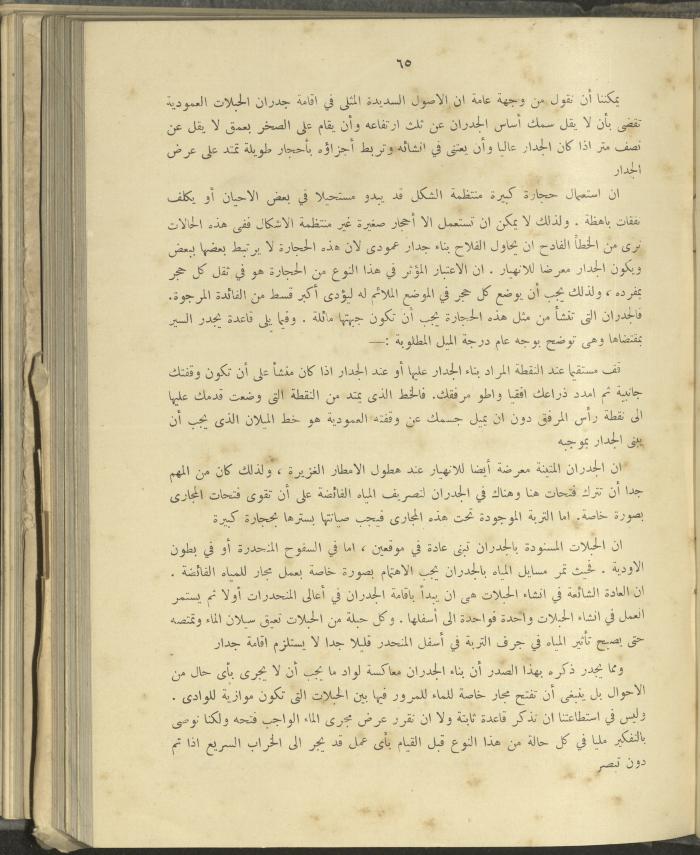 ٦٥
يمكننا أن نقول من وجهة عامة ان الاصول السديدة المثلى في اقامة جدران الحبلات العمودية
تقضى بأن لا يقل سمك أساس الجدران عن ثلث ارتفاعه وأن يقام على الصخر بعمق لا يقل عن
نصف متر اذا كان الجدار عاليا وأن يعتنى في انشائه وتربط أجزاؤه بأحجار طويلة تمتد على عرض
الجدار
ان استعمال حجارة كبيرة منتظمة الشكل قد يبدو مستحيلا في بعض الاحيان أو يكلف
نفقات باهظة . ولذلك لا يمكن ان تستعمل الا أحجار صغيرة غير منتظمة الاشكال ففى هذه الحالات
نرى من الخطأ الفادح ان يحاول الفلاح بناء جدار عمودى لان هذه الحجارة لا يرتبط بعضها ببعض
ويكون الجدار معرضا للانهيار . ان الاعتبار المؤثر في هذا النوع من الحجارة هو في ثقل كل حجر
بمفرده ، ولذلك يجب أن يوضع كل حجر في الموضع الملائم له ليؤدى أكبر قسط من الفائدة المرجوة.
فالجدران التى تنشأ من مثل هذه الحجارة يجب أن تكون جبهتها مائلة . وفيما يلى قاعدة يجدر السير
بمقتضاها وهى توضح بوجه عام درجة الميل المطلوبة :—
قف مستقيما عند النقطة المراد بناء الجدار عليها أو عند الجدار اذا كان منشأ على أن تكون وقفتك
جانبية ثم امدد ذراعك افقيا واطو مرفقك. فالخط الذى يمتد من النقطة التى وضعت قدمك عليها
الى نقطة رأس المرفق دون ان يميل جسمك عن وقفته العمودية هو خط الميلان الذى يجب أن
يبنى الجدار بموجبه
ان الجدران المتينة معرضة أيضا للانهيار عند هطول الامطار الغزيرة ، ولذلك كان من المهم
جدا أن تترك فتحات هنا وهناك في الجدران لتصريف المياه الفائضة على أن تقوى فتحات المجارى
بصورة خاصة. اما التربة الموجودة تحت هذه المجارى فيجب صيانتها بسترها بحجارة كبيرة
ان الحبلات المسنودة بالجدران تبنى عادة في موقعين ، اما في السفوح المنحدرة أو في بطون
الاودية . فحيث تمر مسايل المياه بالجدران يجب الاهتمام بصورة خاصة بعمل مجار للمياه الفائضة .
ان العادة الشائعة في انشاء الحبلات هى ان يبدأ باقامة الجدران في أعالى المنحدرات أولا ثم يستمر
العمل في انشاء الحبلات واحدة فواحدة الى أسفلها . وكل حبلة من الحبلات تعيق سيلان الماء وتمتصه
حتى يصبح تأثير المياه في جرف التربة في أسفل المنحدر قليلا جدا لا يستلزم اقامة جدار
ومما يجدر ذكره بهذا الصدر أن بناء الجدران معاكسة لواد ما يجب أن لا يجرى بأى حال من
الاحوال بل ينبغى أن تفتح مجار خاصة للماء للمرور فيها بين الحبلات التى تكون موازية للوادى .
وليس في استطاعتنا ان نذكر قاعدة ثابتة ولا ان نقرر عرض مجرى الماء الواجب فتحه ولكنا نوصى
بالتفكير مليا في كل حالة من هذا النوع قبل القيام بأى عمل قد يجر الى الخراب السريع اذا تم
دون تبصر